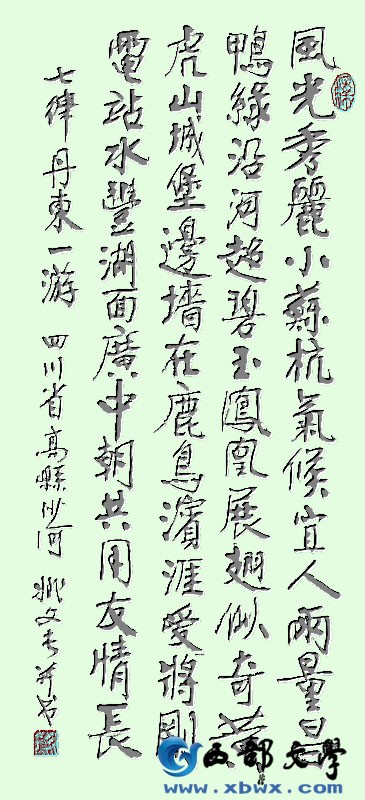 風光秀麗小蘇杭氣候宜人雨量昌
鴨綠沿河超碧玉鳳凰展翅似奇
虎山城堡邊墻在鹿鳥濱涯愛將剛
電站水豐湖面廣中朝共用友情長
七律 丹東一游 四川省高縣沙河 姚文长并书
西部文學
www.xbwx.com